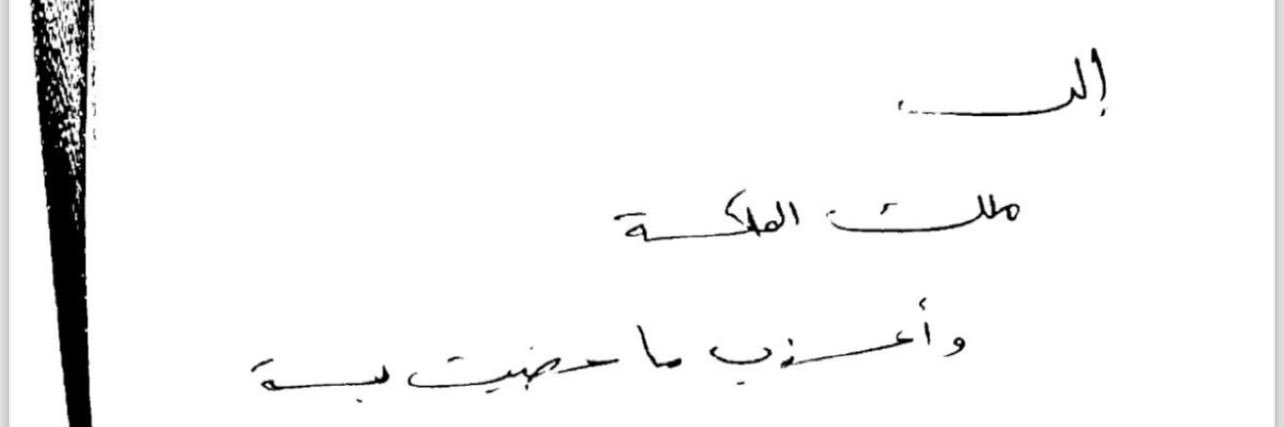 إلى
ملك الملكة
وأعذب ما حضيت بة